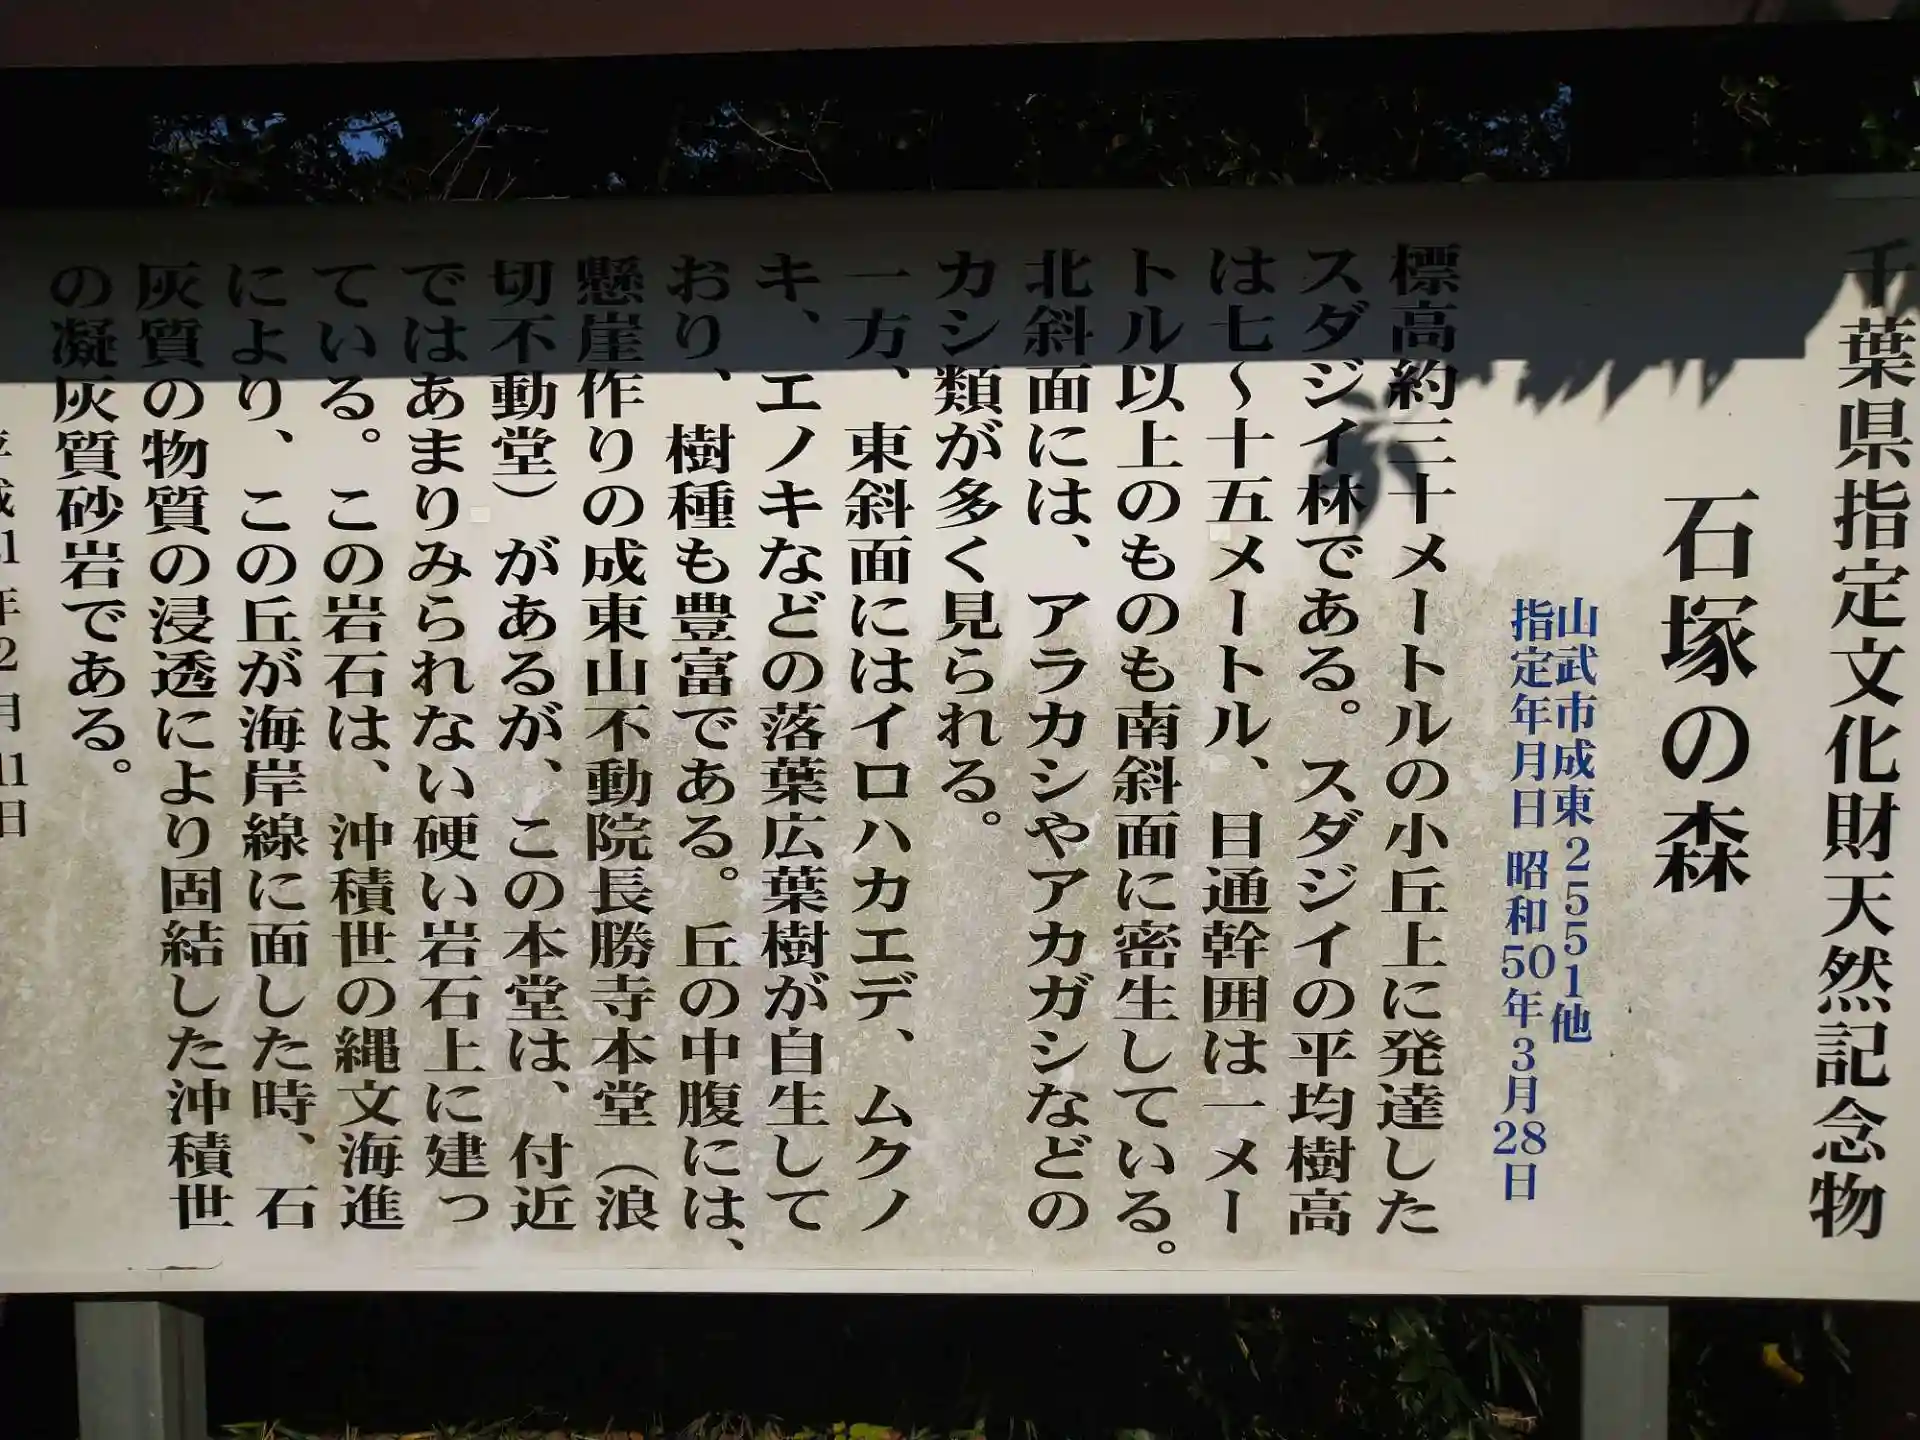 千葉県指定文化財天然記念物
石塚の森
山武市成東2551他
指定年月日 昭和50年3月28日
標高約三十メートルの小丘上に発達した
スダジイ林である。スダジイの平均樹高
は七～十五メートル、目通幹囲は一メー
トル以上のものも南斜面に密生している。
北斜面には、アラカシやアカガシなどの
カシ類が多く見られる。
一方、東斜面にはイロハカエデ、ムクノ
キ、エノキなどの落葉広葉樹が自生して
おり、樹種も豊富である。丘の中腹には、
懸崖作りの成東山不動院長勝寺本堂（浪
切不動堂）があるが、この本堂は、付近
ではあまりみられない硬い岩石上に建っ
ている。この岩石は、沖積世の縄文海進
により、この丘が海岸線に面した時、石
灰質の物質の浸透により固結した沖積世
の凝灰質砂岩である。
年2月11日